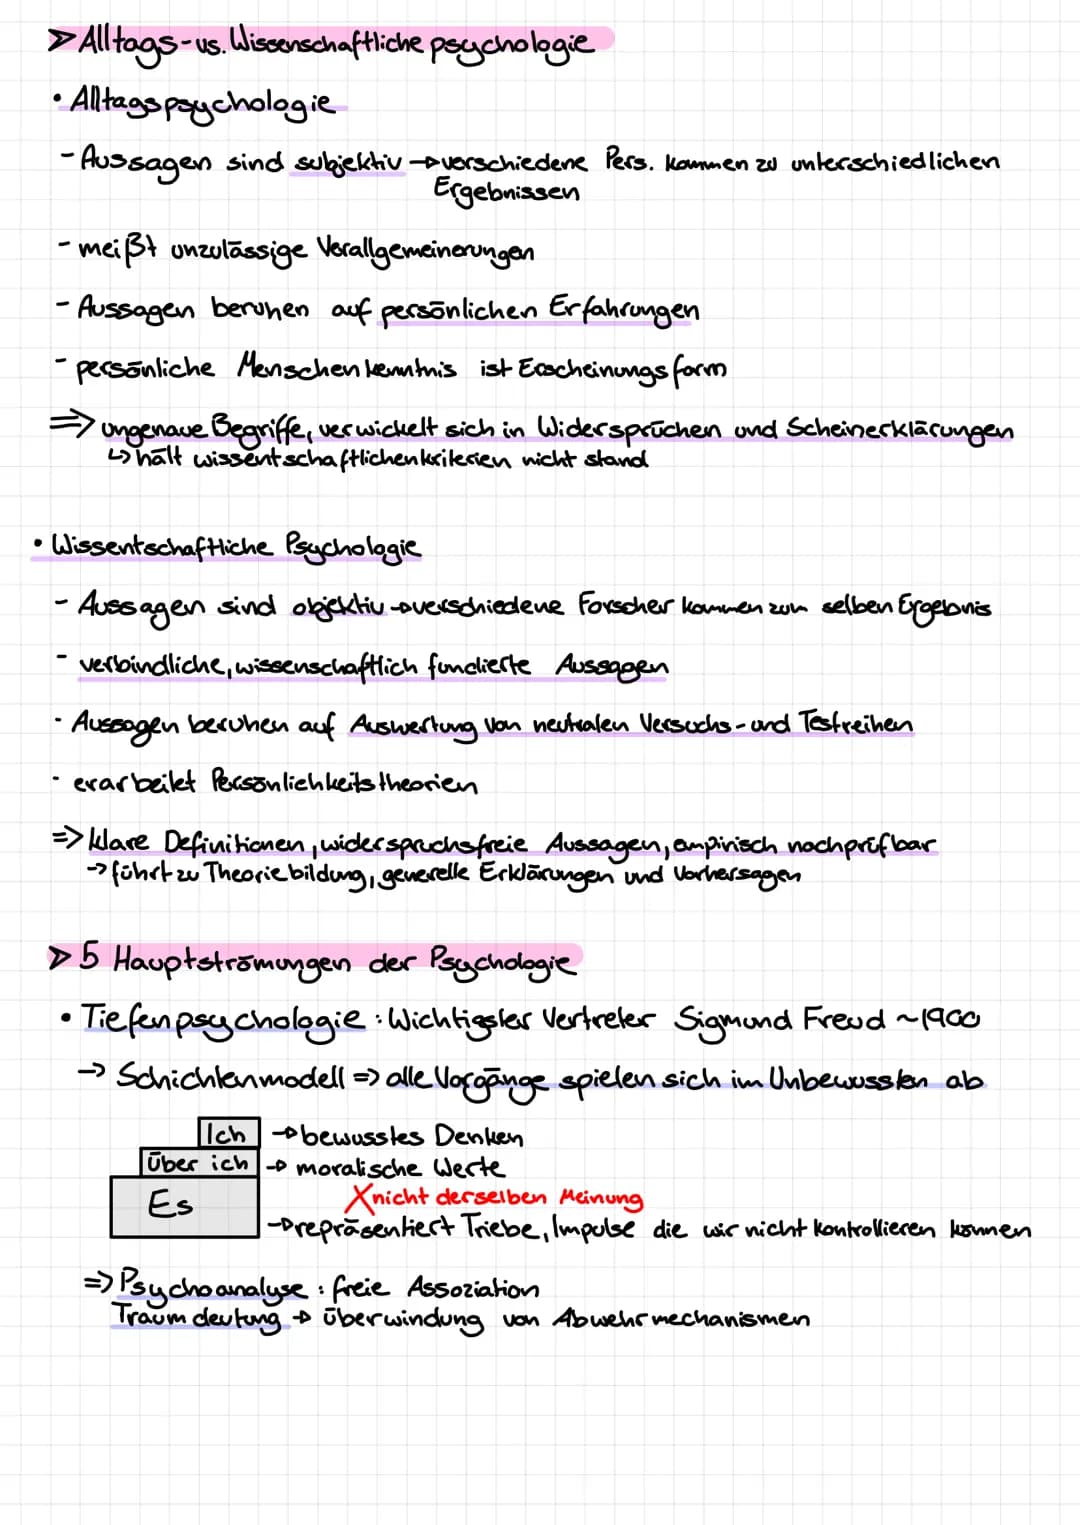 ➢ Alltags- vs. Wissenschaftliche psychologie
• Alltagspsychologie
- Aussagen sind subjektiv → verschiedene Pers. kommen zu unterschiedlichen
Ergebnissen
- meißt unzulässige Verallgemeinerungen
- Aussagen beruhen auf persönlichen Erfahrungen
- persönliche Menschenkenntnis ist Erscheinungsform
⇒ ungenaue Begriffe, verwickelt sich in Widersprüchen und Scheinerklärungen
↳ hält wissentschaftlichenkriterien nicht stand
• Wissentschaftliche Psychologie
- Aussagen sind objektiv → verschiedene Forscher kommen zum selben Ergebnis
- verbindliche, wissenschaftlich fundierte Aussagen
- Aussagen beruhen auf Auswertung von neutralen Versuchs- und Testreihen
- erarbeitet Persönlichkeitstheorien
⇒ klare Definitionen, widerspruchsfreie Aussagen, empirisch nachprüfbar
→ führt zu Theoriebildung, generelle Erklärungen und Vorhersagen
➢ 5 Hauptströmungen der Psychologie
• Tiefenpsychologie : Wichtigster Vertreter Sigmund Freud ~1900
→ Schichtenmodell ⇒ alle Vorgänge spielen sich im Unbewussten ab
Ich → bewusstes Denken
Über ich → moralische Werte
X nicht derselben Meinung
Es → repräsentiert Triebe, Impulse die wir nicht kontrollieren können
⇒ Psychoanalyse : freie Assoziation
Traumdeutung → Überwindung von Abwehrmechanismen